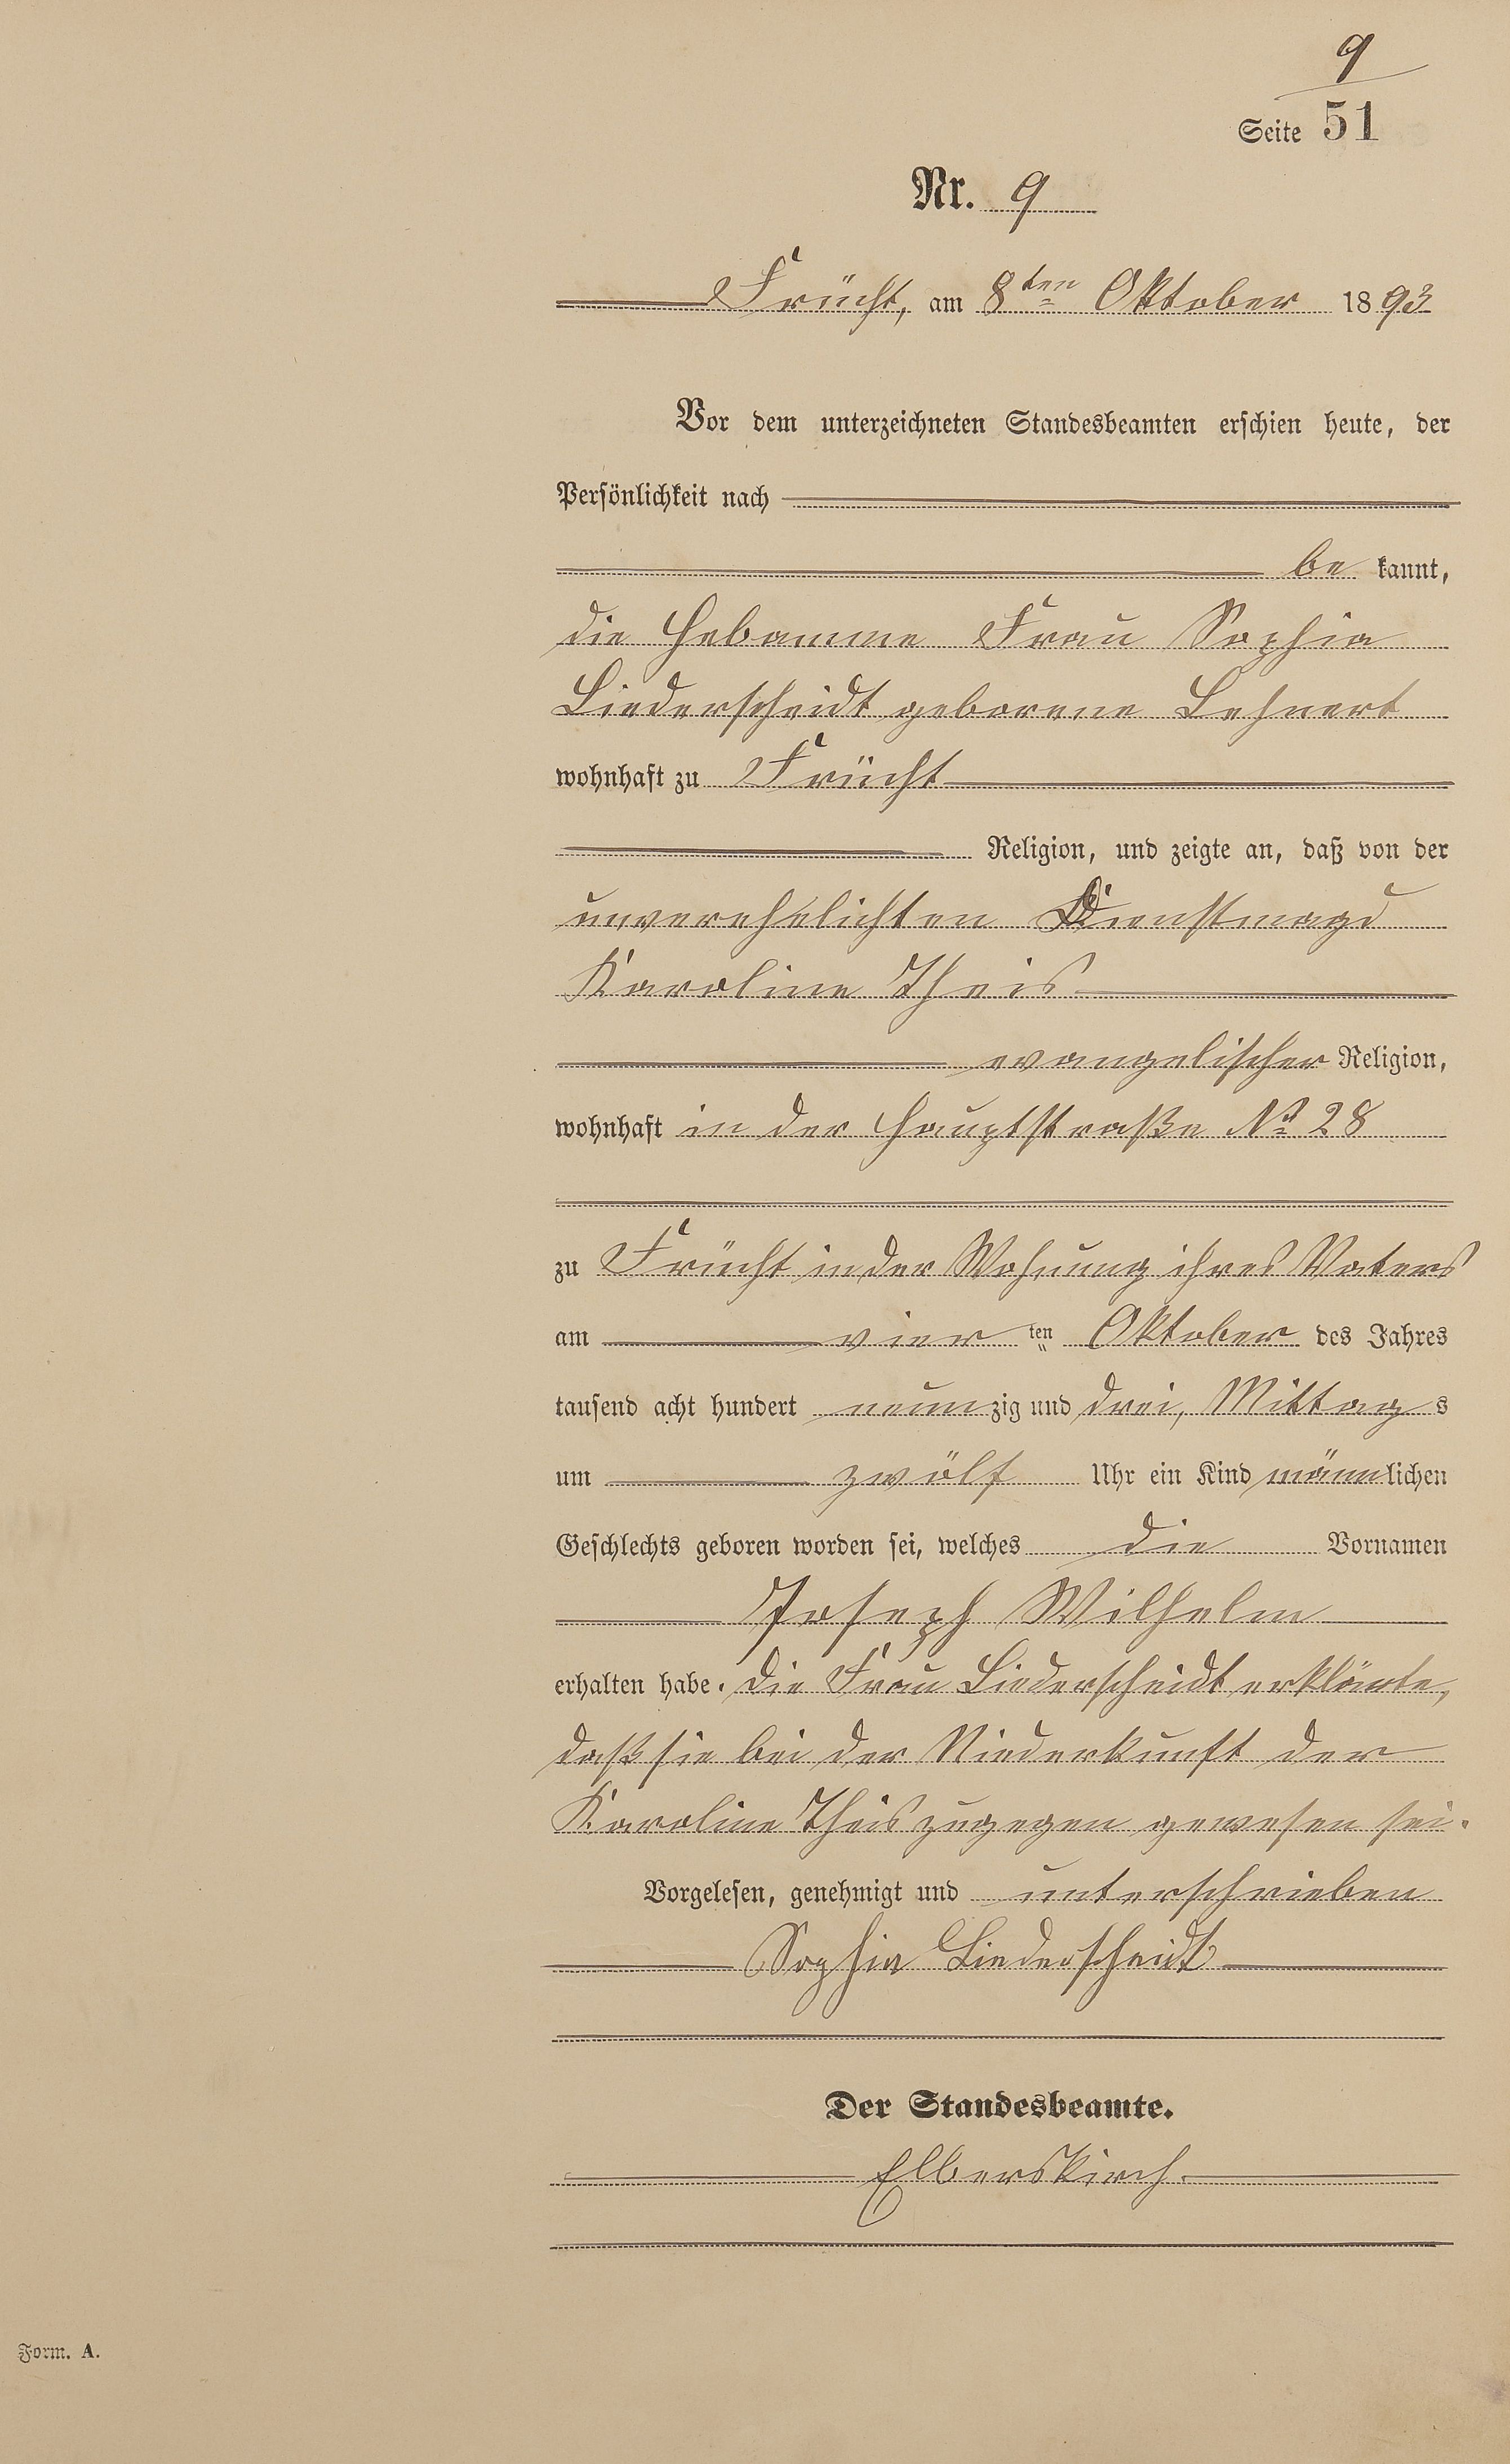 9
Seite 51
Nr. 9
Frücht, am 8ten Oktober 1893
Vor dem unterzeichneten Standesbeamten erschien heute, der
Persönlichkeit nach
be kannt,
die Hebamme Frau Sophia
Liederscheidt geborene Lehnert
wohnhaft zu Frücht
Religion, und zeigte an, daß von der
unverehelichten Dienstmagd
Karoline Theis
evangelischer Religion,
wohnhaft in der Hauptstraße No 28
zu Frücht in der Wohnung ihres Vaters
am vier ten Oktober des Jahres
tausend acht hundert neunzig und drei, Mittags
um zwölf Uhr ein Kind männlichen
Geschlechts geboren worden sei, welches die Vornamen
Joseph Wilhelm
erhalten habe. Die Frau Liederscheidt erklärte,
daß sie bei der Niederkunft der
Karoline Theis zugegen gewesen sei.
Vorgelesen, genehmigt und unterschrieben
Sophia Liederscheidt
Der Standesbeamte.
Elberskirch.
Form. A.